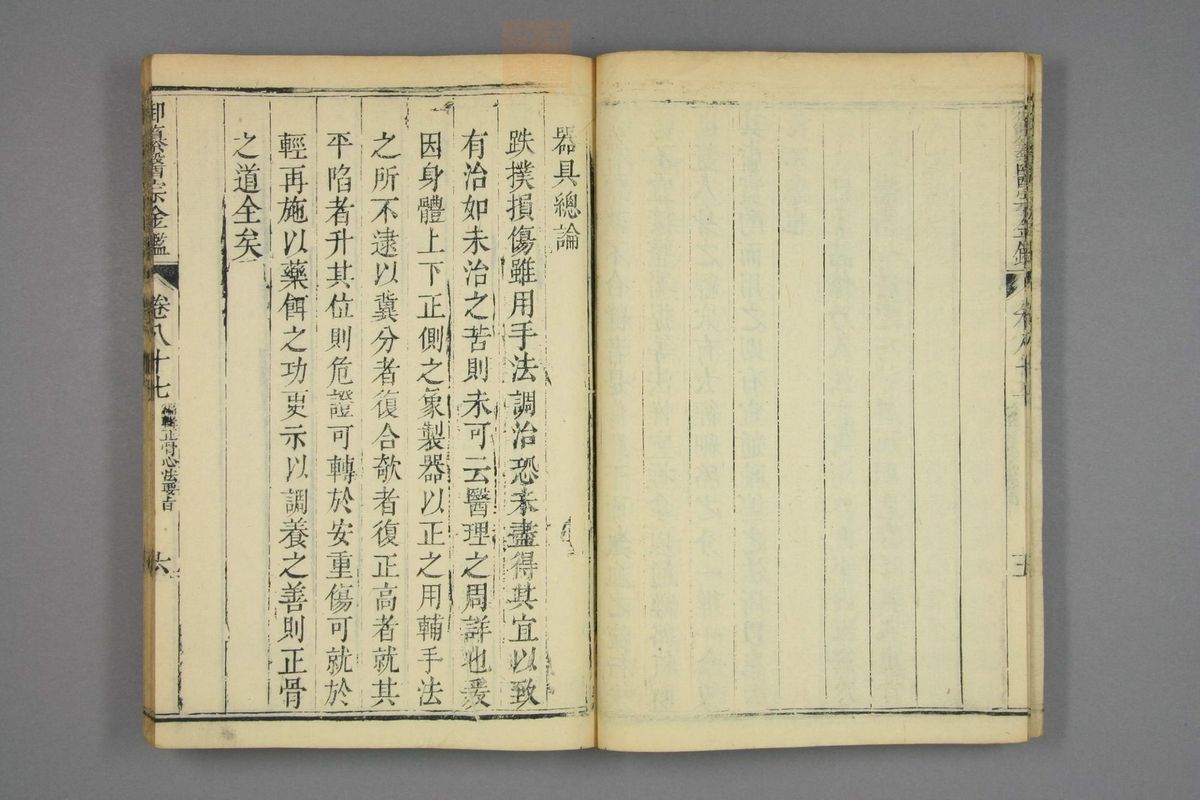 器具總論
跌撲損傷雖用手法調治恐未盡得其宜以致
有治如未治之苦則未可云醫理之周詳也爰
因身體上下正側之象製器以正之用輔手法
之所不逮以冀分者復合欹者復正高者就其
平陷者升其位則危證可轉於安重傷可就於
輕再施以藥餌之功更示以調養之善則正骨
之道全矣
御纂醫宗金鑑
卷八十七
編輯正骨心法要旨
六